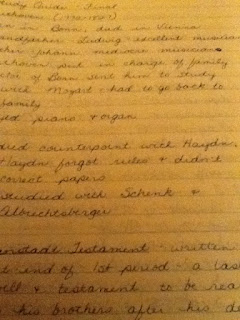 Study Guide - Final
Beethoven (1770-1827)
in Bonn, died in Vienna
Grandfather Ludwig excellent musician
Johann mediocre musician
Beethoven put in charge of family
of Bonn sent him to study
with Mozart - had to go back to
family
piano & organ
died counterpoint with Haydn,
Haydn forgot rules & didn't
correct papers
studied with Schenk &
Albrechtsberger
enstadt Testament - written
t end of 1st period - a last
will & testament to be rea
his brothers after his de